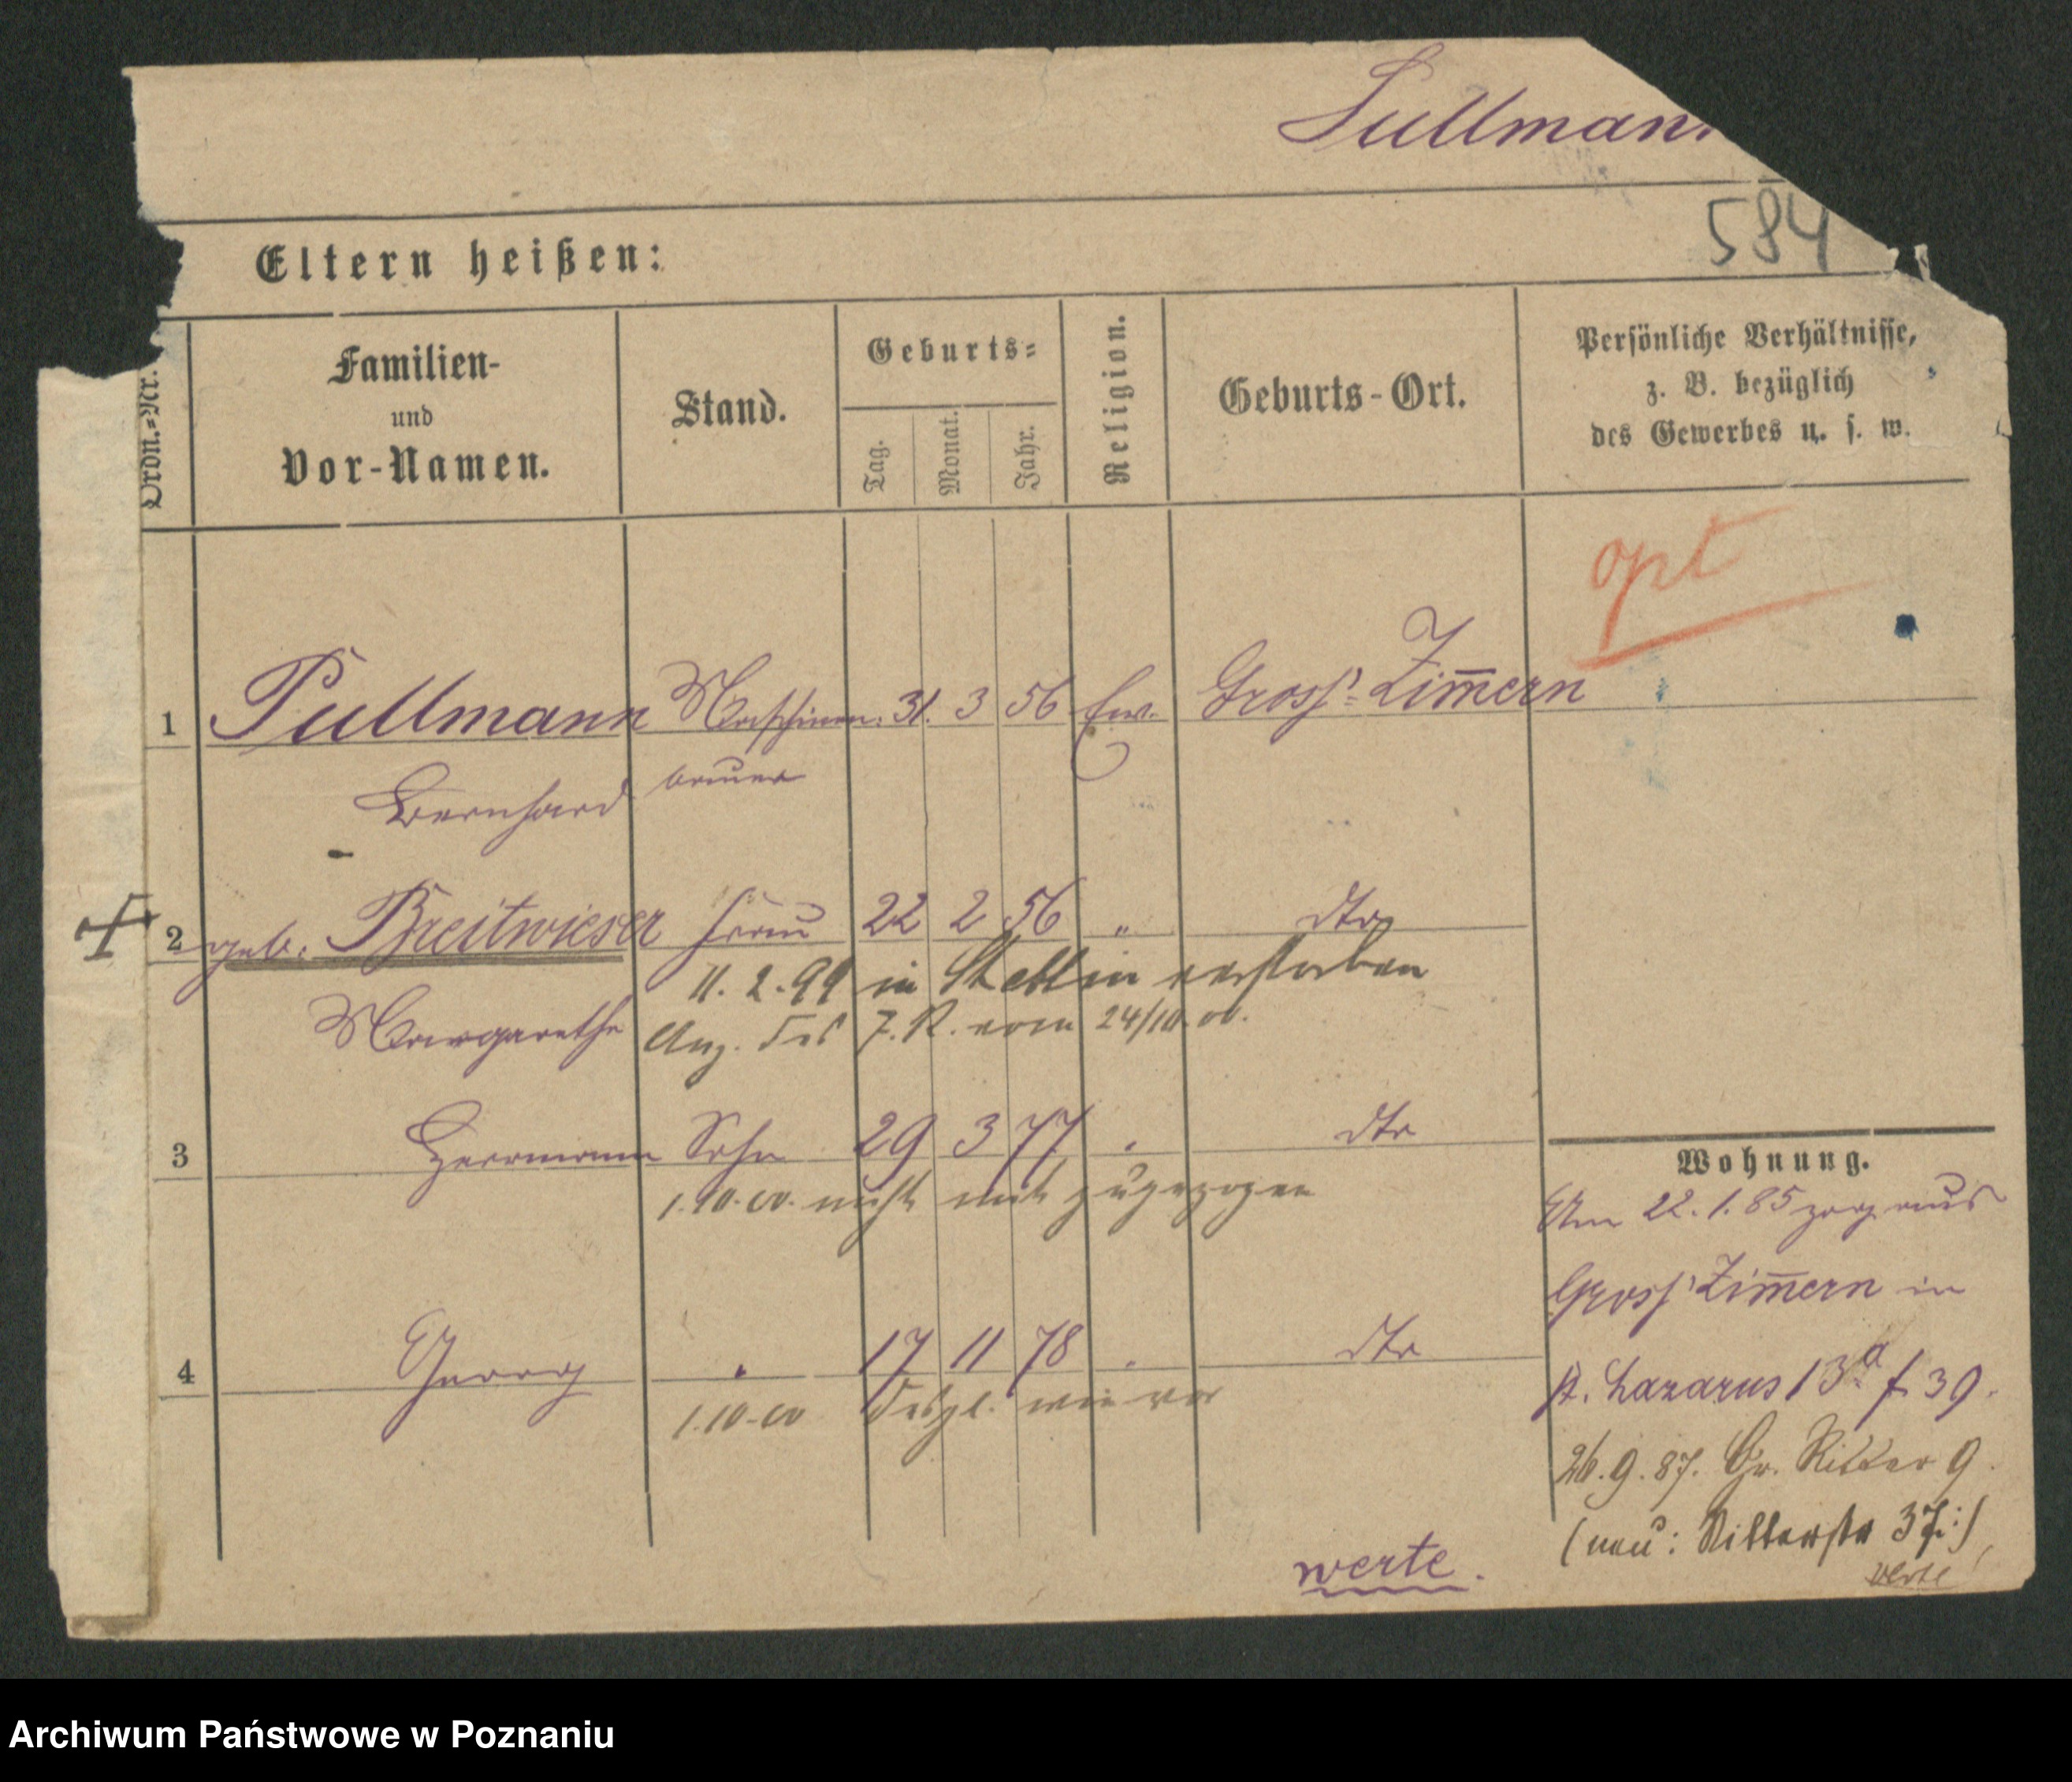 Pullmann
584
Eltern heißen:
Ordn.-Nr.
Familien- und Vor-Namen.
Stand.
Geburts-
Tag.
Monat.
Jahr.
Religion.
Geburts-Ort.
Persönliche Verhältnisse,
z. B. bezüglich
des Gewerbes u. s. w.
opt
1 Pullmann Maschinen- 31. 3 56 Ew. Gross-Zim̅ern
Bernhard bauer
2 geb. Breitwieser Frau 22 2 56 " dto
11. 2. 99 in Stettin verstorben
Margarethe Anz. des vom 24/10. 00.
3 Herrmann Sohn 29 3 77 " dto
1. 10. 00. nicht mit zugezogen
4 Georg " 17 11 78 " dto
1. 10. 00 desgl. wie vor
Wohnung.
Am 22. 1. 85 zog aus
Gross Zim̅ern in
St. Lazarus 13a f. 39.
26. 9. 87. Gr. Ritter 9.
(neu: Ritterstr 37.)
verte
verte.
Archiwum Państwowe w Poznaniu